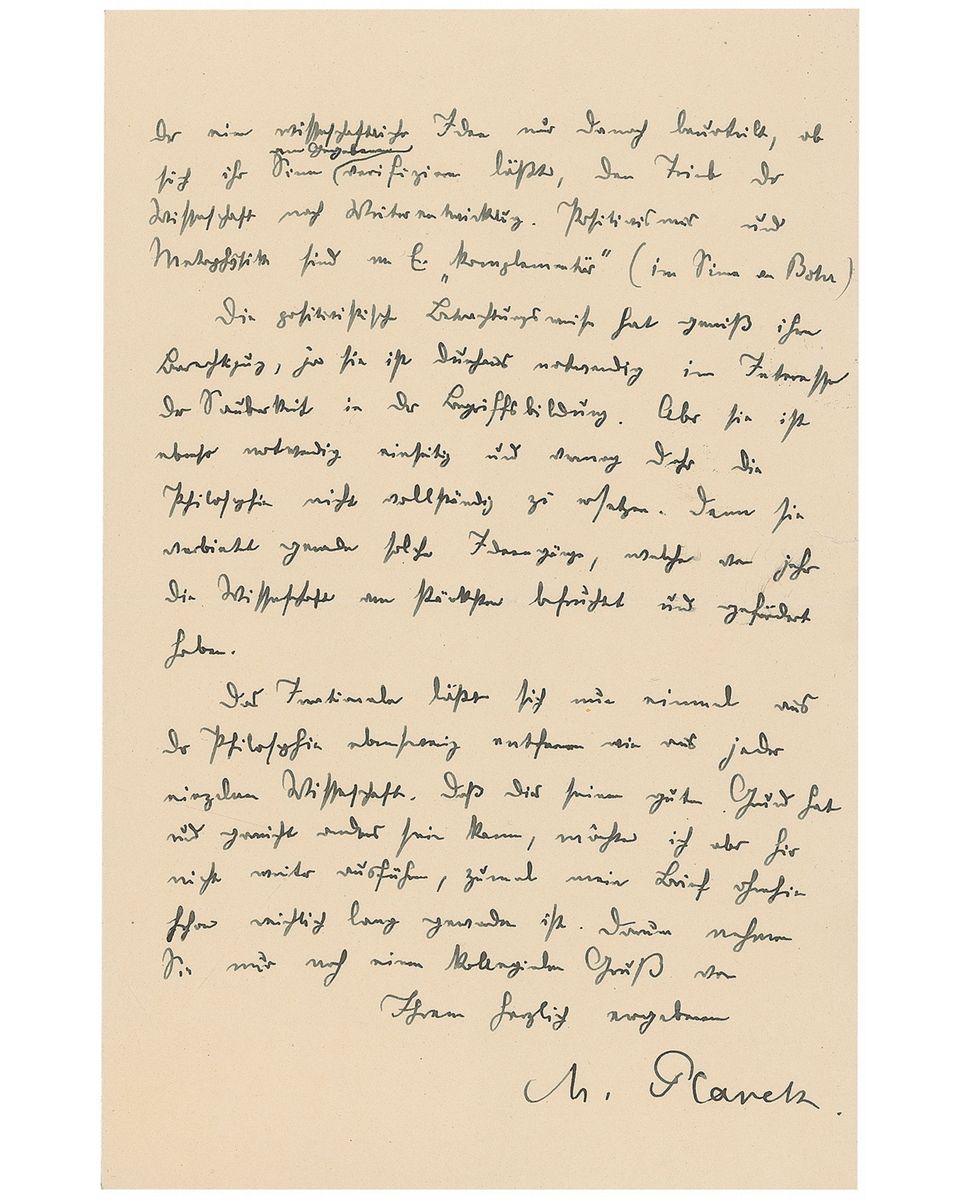 der eine wissenschaftliche Idee nur danach beurteilt, ob
am Gegebenen
sich ihr Sinn verifizieren läßt, den Trieb der
Wissenschaft nach Weiterentwicklung. Positivismus und
Metaphysik sind m. E. „komplementär" (im Sinne von Bohr)
Die positivistische Betrachtungsweise hat gewiß ihre
Berechtigung, ja sie ist durchaus notwendig im Interesse
der Sauberkeit in der Begriffsbildung. Aber sie ist
ebenso notwendig einseitig und vermag daher die
Philosophie nicht vollständig zu ersetzen. Denn sie
verbietet gerade solche Ideengänge, welche von jeher
die Wissenschaft am stärksten befruchtet und gefördert
haben.
Das Irrationale läßt sich nun einmal aus
der Philosophie ebensowenig entfernen wie aus jeder
einzelnen Wissenschaft. Daß dies seinen guten Grund hat
und garnicht anders sein kann, möchte ich aber hier
nicht weiter ausführen, zumal mein Brief ohnehin
schon reichlich lang geworden ist. Darum nehmen
Sie nur noch einen kollegialen Gruß von
Ihrem herzlich ergebenen
M. Planck.